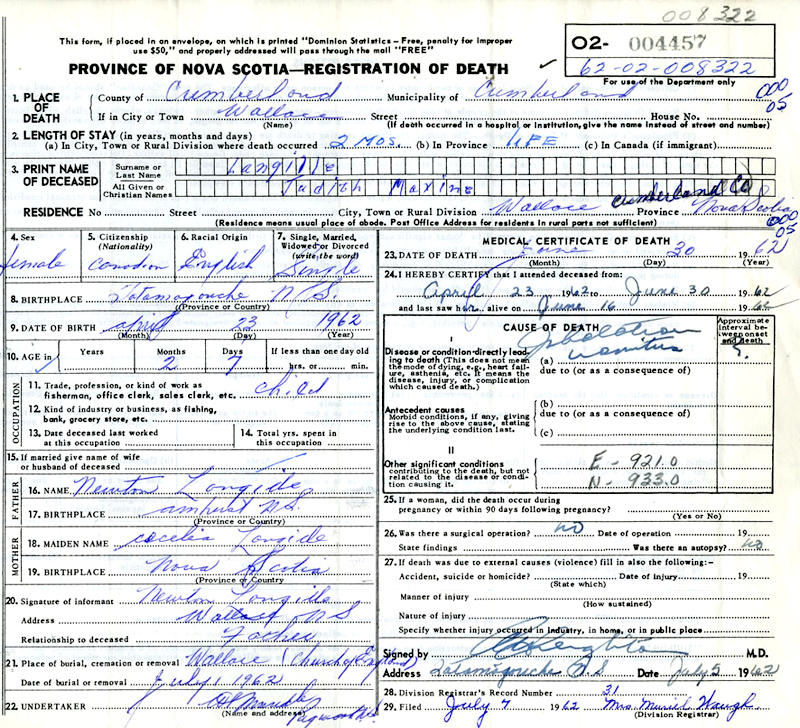 008322
This form, if placed in an envelope, on which is printed "Dominion Statistics – Free, penalty for improper
use $50," and properly addressed will pass through the mail "FREE"
PROVINCE OF NOVA SCOTIA—REGISTRATION OF DEATH
O2- 004457
62-02-008322
For use of the Department only
1. PLACE OF DEATH
County of Cumberland Municipality of Cumberland 000
05
If in City or Town Wallace Street House No.
(Name) (If death occurred in a hospital or institution, give the name instead of street and number)
2. LENGTH OF STAY (in years, months and days)
(a) In City, Town or Rural Division where death occurred 2 mos. (b) In Province LIFE (c) In Canada (if immigrant)
3. PRINT NAME OF DECEASED
Surname or Last Name Langille
All Given or Christian Names Judith Maxine
RESIDENCE No Street City, Town or Rural Division Wallace Cumberland Co Province Nova Scotia
(Residence means usual place of abode. Post Office Address for residents in rural parts not sufficient)
000
05
4. Sex female
5. Citizenship (Nationality) Canadian
6. Racial Origin English
7. Single, Married, Widowed or Divorced (write the word) Single
8. BIRTHPLACE Tatamagouche N.S.
(Province or Country)
9. DATE OF BIRTH April 23 1962
(Month) (Day) (Year)
10. AGE in Years Months 2 Days 7 If less than one day old
hrs. or min.
OCCUPATION
11. Trade, profession, or kind of work as
fisherman, office clerk, sales clerk, etc. child
12. Kind of industry or business, as fishing,
bank, grocery store, etc.
13. Date deceased last worked at this occupation
14. Total yrs. spent in this occupation
15. If married give name of wife
or husband of deceased
FATHER
16. NAME Newton Langille
17. BIRTHPLACE Amherst N.S.
(Province or Country)
MOTHER
18. MAIDEN NAME Cecelia Langille
19. BIRTHPLACE Nova Scotia
(Province or Country)
20. Signature of informant Newton Langille
Address Wallace N S
Relationship to deceased Father
21. Place of burial, cremation or removal Wallace (Church of England)
Date of burial or removal July 1, 1962
22. UNDERTAKER
(Name and address) Pugwash N.S.
MEDICAL CERTIFICATE OF DEATH
23. DATE OF DEATH June 30 1962
(Month) (Day) (Year)
24. I HEREBY CERTIFY that I attended deceased from:
April 23 1962 to June 30 1962
and last saw her alive on June 16 1962
CAUSE OF DEATH
Approximate interval between onset and death
I
Disease or condition directly leading to death (This does not mean the mode of dying, e.g., heart failure, asthenia, etc. It means the disease, injury, or complication which caused death.)
(a) Inhalation vomitus ?
due to (or as a consequence of)
Antecedent causes
Morbid conditions, if any, giving rise to the above cause, stating the underlying condition last.
(b)
due to (or as a consequence of)
(c)
II
Other significant conditions
contributing to the death, but not related to the disease or condition causing it.
E - 921.0
N - 933.0
25. If a woman, did the death occur during
pregnancy or within 90 days following pregnancy?
(Yes or No)
26. Was there a surgical operation? no Date of operation 19
State findings Was there an autopsy? no
27. If death was due to external causes (violence) fill in also the following:-
Accident, suicide or homicide? Date of injury 19
(State which)
Manner of injury
(How sustained)
Nature of injury
Specify whether injury occurred in industry, in home, or in public place
Signed by M.D.
Address Tatamagouche N S Date July 5 1962
28. Division Registrar's Record Number 31
29. Filed July 7 1962 Mrs. Muriel Waugh
(Division Registrar)